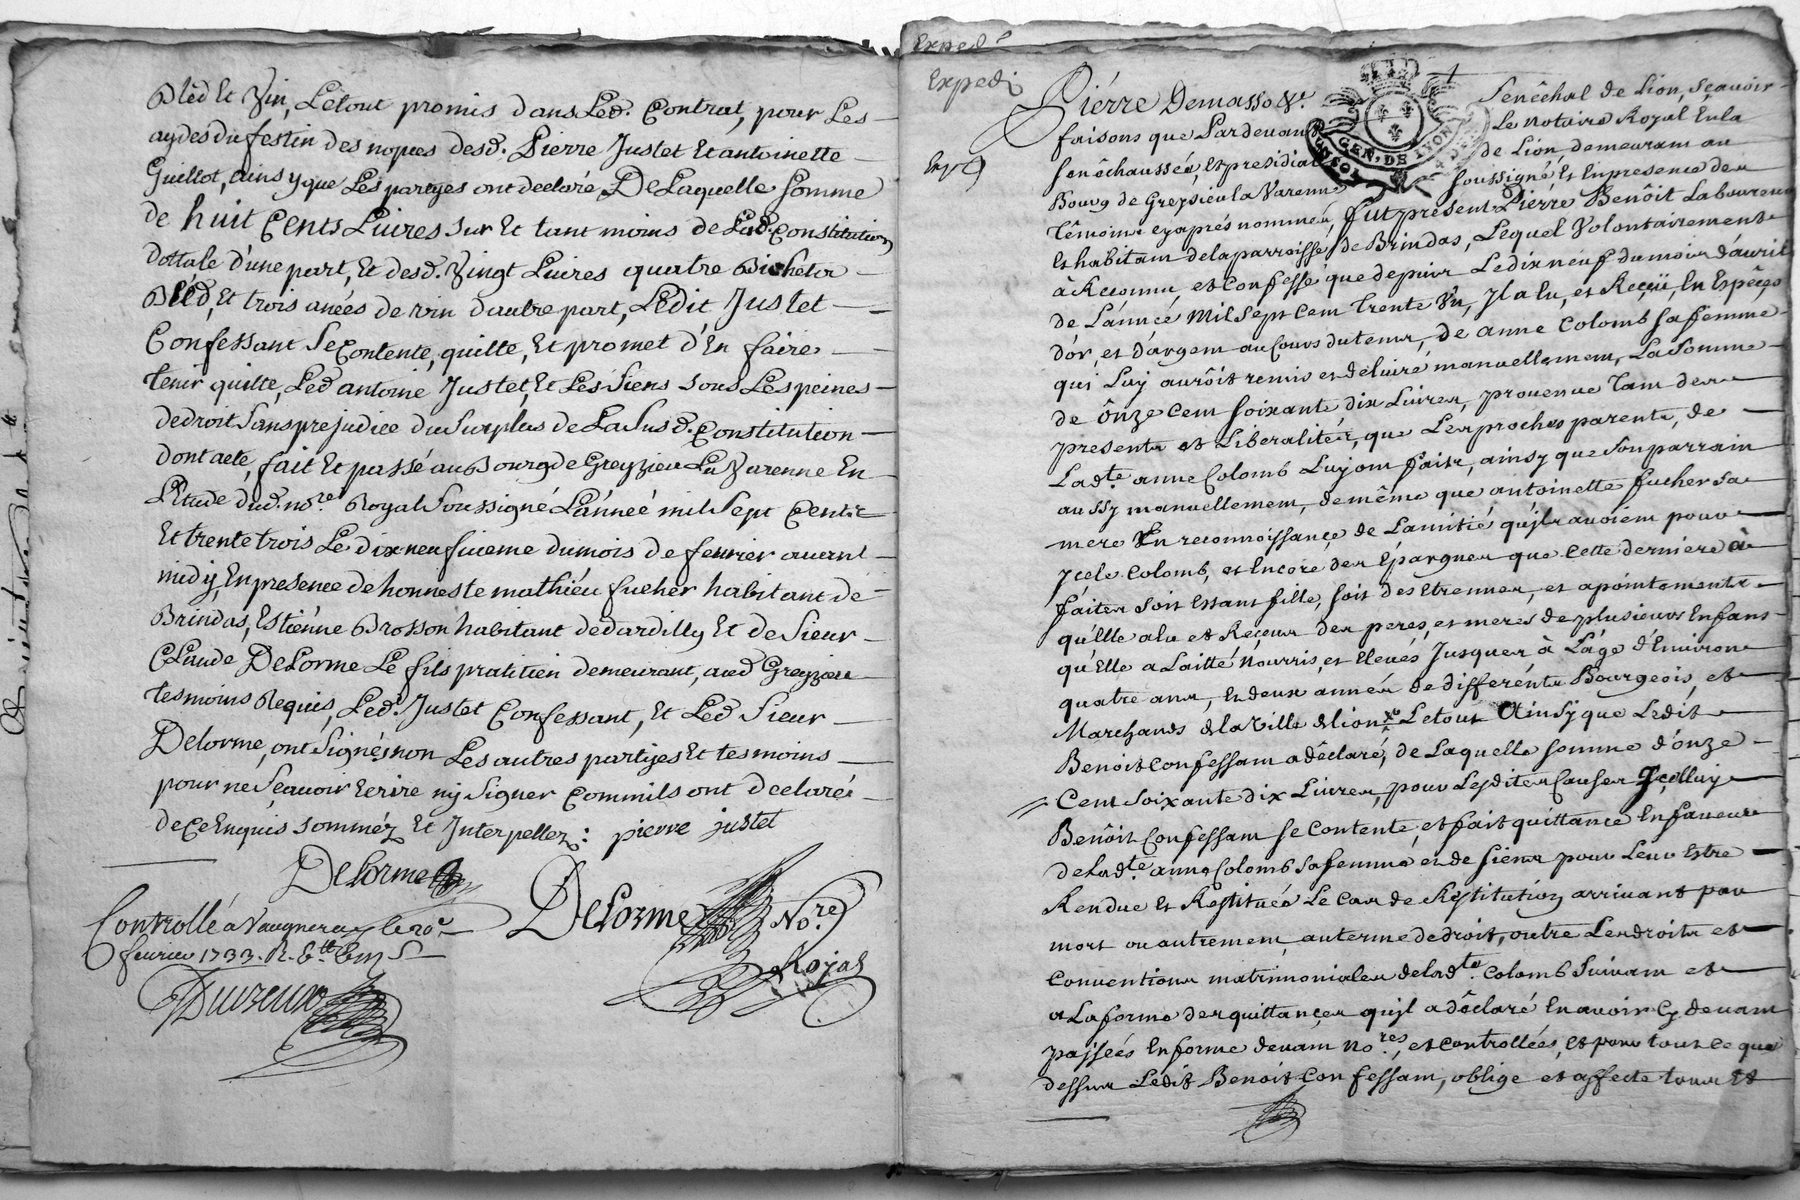 Bléd Et Vin, Le tout promis dans Led. Contrat, pour Les
aydes du festin des nopces desd. Pierre Justet Et antoinette
Guillot, ainsy que Les partyes ont declaré, De Laquelle somme
de huit Cents Livres sur Et tant moins de Lad. Constitution
dottale d'une part, Et desd. Vingt Livres quatre Bichets
Bléd, Et trois anées de vin d'autre part, Ledit Justet
Confessant Se Contente, quitte, Et promet d'En faire
tenir quitte, Led antoine Justet, Et Les Siens sous Les peines
de droit Sans prejudice du Surplus de La Susd. Constitution
dont acte, fait Et passé au Bourg de Greyzieu La Varenne En
L'Etude dud. nore. Royal Soussigné L'année mil Sept Cents
Et trente trois Le dix neufvieme du mois de fevrier avant
midy, En presence de honneste mathieu fucher habitant de
Brindas, Estiénne Brosson habitant de dardilly Et de Sieur
Claude Delorme Le fils pratitien demeurant, aud Greyzieu
tesmoins Requis, Led. Justet Confessant, Et Led Sieur
Delorme, ont Signés non Les autres partyes Et tesmoins
pour ne Sçavoir Ecrire ny Signer Comm'ils ont declarés
de ce Enquis sommés Et Interpellez: pierre justet
Delorme
Delorme Nore.
Royal
Controllé à Vaugneray le 20e.
fevrier 1733. R.
Expedé
Expedi
Exp
GEN. DE LYON
Pierre Demasso &c. Senêchal de Lion, sçavoir
faisons que Pardevant Le Notaire Royal En la
senêchaussée, et presidial de Lion demeurant au
Bourg de Greysieu la Varenne soussigné Et En presence des
têmoins cy aprés nommés, fut present Pierre Benôit Laboureur
Et habitant de la parroisse de Brindas, Lequel Volontairement
à Reconnu, et Confessé que depuis Le dix neuf du mois d'avril
de L'année Mil Sept Cent trente Un, Il a Eu, et Reçu, En Espêces
d'or, et d'argent au Cours du tems, de anne Colomb sa femme
qui Luy aurôit remis et delivré manuellement, La Somme
de Ônze Cent soixante dix Livres, provenue tant des
presents et Liberalités, que Les proches parents, de
Ladte. anne Colomb Luy ont faits, ainsy que Son parrain
aussy manuellement, de même que antoinette fucher sa
mere En reconnoissance de L'amitié qu'ils avoient pour
ycele Colomb, et Encore des Epargnes que Cette derniere à
faites soit Estant fille, soit des Etrennes, et apointements
qu'Elle a Eu et Reçeus des peres, et meres de plusieurs Enfans
qu'Elle a Laitté Nourris, et Elevés Jusques à L'âge d'Environ
quatre ans, Et deux années de differénts Bourgeois, et
Marchands de la Ville de Lion, Le tout Ainsy que Ledit
Benoit Confessant a dêclaré, de Laquelle somme d'ônze
Cent Soixante dix Livres, pour Lesdites Causes Icelluy
Benôit Confessant se Contente, et fait quittance En faveur
de Ladte. anne Colomb sa femme et de siens pour Leur Estre
Rendue Et Restituée Le Cas de Restitution arrivant par
mort ou autrement, au terme de droit, outre Les droits et
Conventions matrimoniales de Ladte. Colomb Suivant et
a La forme des quittances qu'il a dêclaré En avoir Cy devant
passées En forme devant Nores, et Controllées, Et pour tout Ce que
dessus Ledit Benoit Confessant, oblige et affecte tous Et